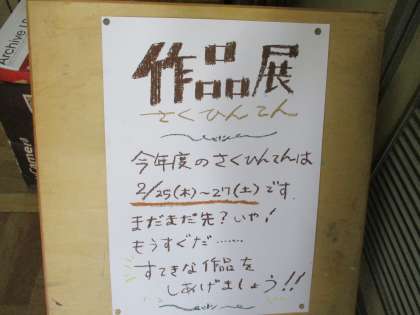 Archive
camera
作品展
さくひんてん
今年度のさくひんてんは
2/25(木)~27(土)です
まだまだ先?いや!
もうすぐだ……
すてきな作品を
しあげましょう!!